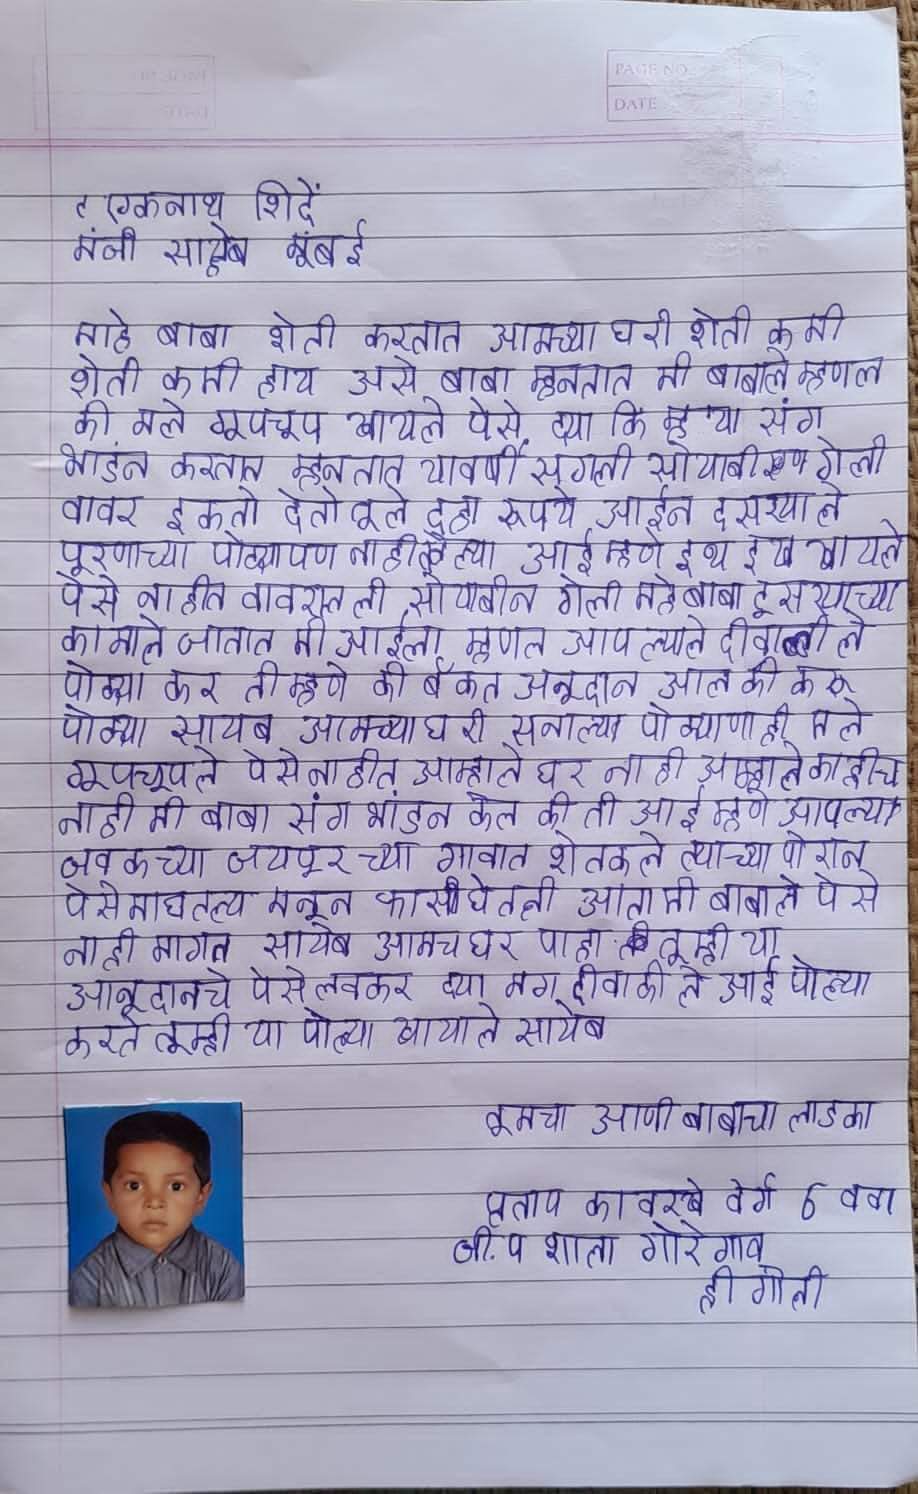 PAGE NO.
DATE
एकनाथ शिदें
मंत्री साहेब मूंबई
माहे बाबा शेती करतात आमच्या घरी शेती कमी
शेती कमी हाय असे बाबा म्हनतात मी बाबाले म्हणल
की मले गूपचूप खायले पेसे द्या कि म्ह या संग
भाडंन करतात म्हनतात यावर्षी सगली सोयाबीण गेली
वावर इकतो देतो तूले दहा रूपये आईन दसऱ्याले
पूरणाच्या पोळ्यापण नाही केल्या आई म्हणे इथ इख खायले
पेसे नाहीत वावरातली सोयाबीन गेली महे बाबा दूसऱ्याच्या
कामाले जातात मी आईला म्हणल आपल्याले दीवाळीले
पोळ्या कर ती म्हणे की बँकत अनूदान आल की करू
पोळ्या सायब आमच्या घरी सनाल्या पोळ्या णाही मले
गूपचूपले पेसे नाहीत आम्हाले घर नाही आम्हाले काहीच
नाही मी बाबा संग भांडन केल की ती आई म्हणे आपल्या
जवळच्या जयपूरच्या गावात शेतकले त्याच्या पोरान
पेसे माघतल्य मनून फासी घेतली आता मी बाबाले पेसे
नाही मागत सायेब आमच घर पाहा तूम्ही या
आनूदानचे पेसे लवकर द्या मग दीवाळीले आई पोळ्या
करते तूम्ही या पोळ्या खायाले सायेब
तूमचा आणी बाबाचा लाडका
प्रताप कावरखे वर्ग 6 ववा
जी.प शाला गोरेगाव
हीगोली